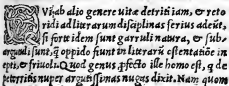 QVi ab alio genere uitæ detriti iam, & reto
ridi ad literarum disciplinas serius adeūt,
si forte idem sunt garruli natura, & sub-
arguti sunt, q̃ oppido sunt in literarū ostentatiõe in
epti, & friuoli. Quod genus pfecto ille homo est, q de
petorritis nuper argutissimas nugas dixit. Nam quom